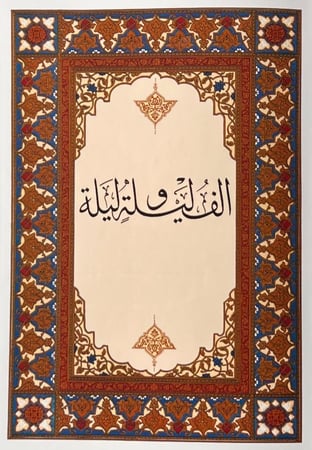 الفُ ليلةٍ وليلة